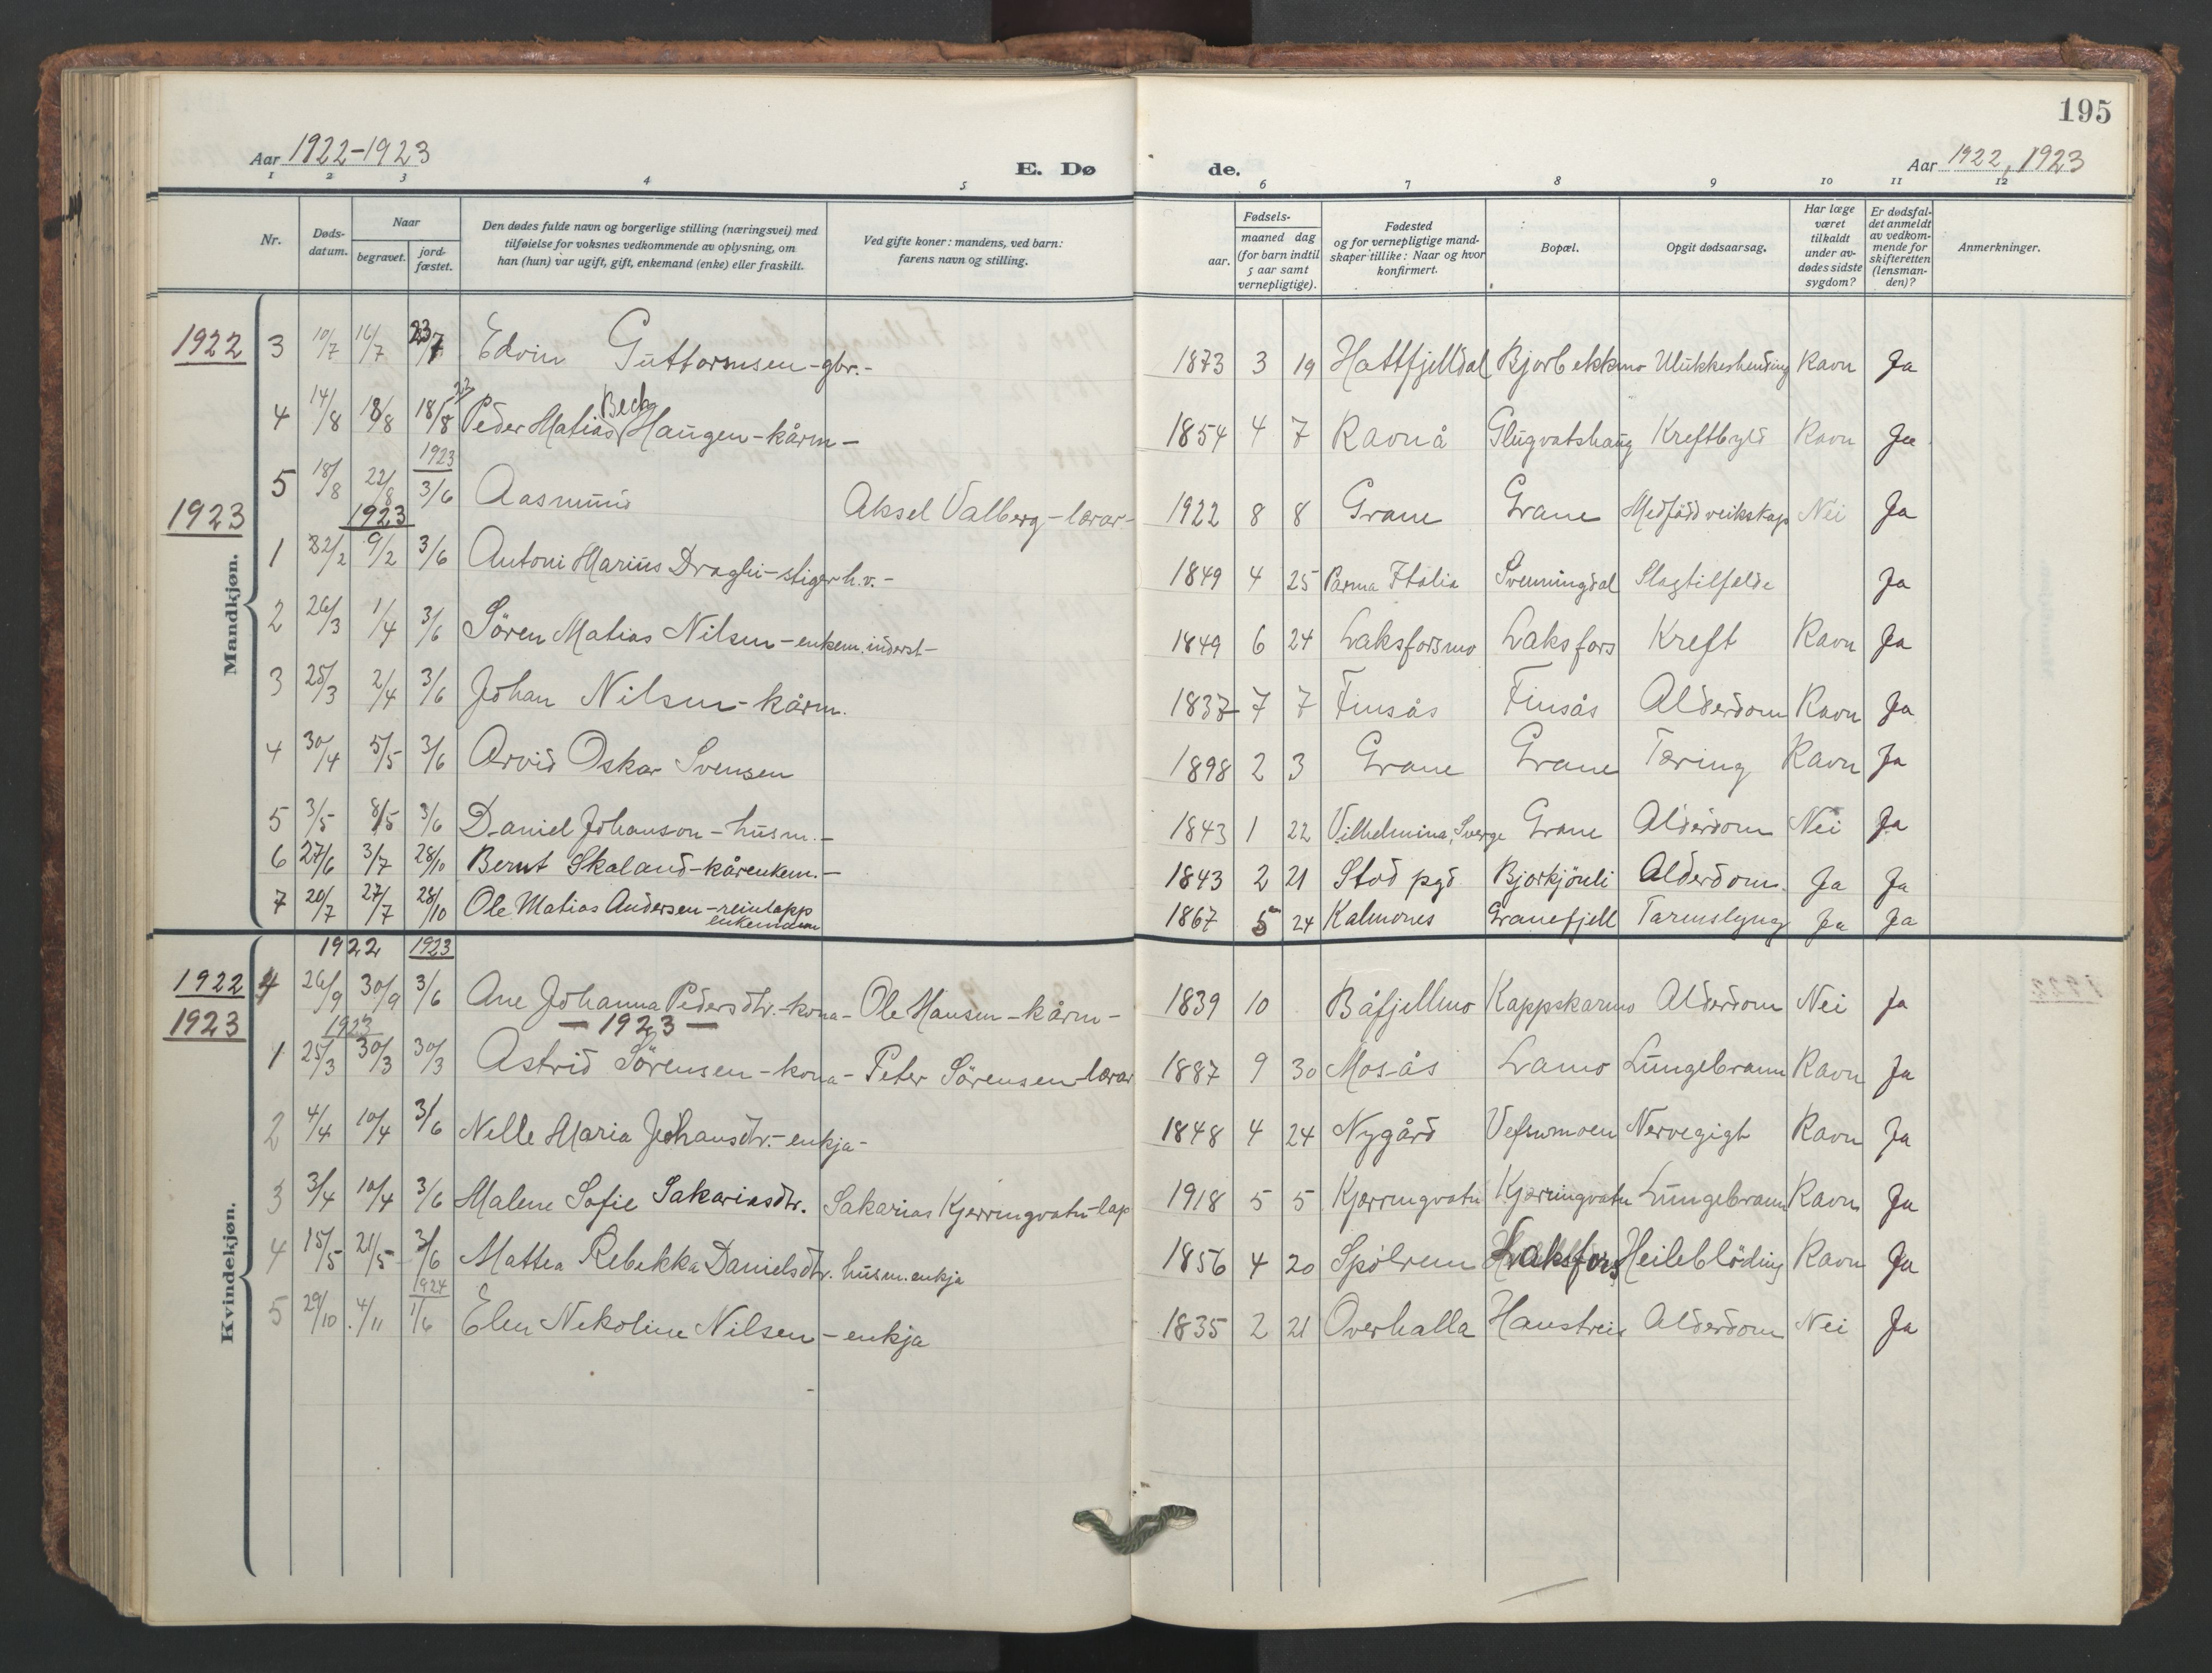 195
Aar 1922-1923
E. Dø
de.
Aar 1922, 1923
1 2 3 4 5 6 7 8 9 10 11 12
Nr.
Døds-
datum.
Naar
begravet.
jord-
fæstet.
Den dødes fulde navn og borgerlige stilling (næringsvei) med
tilføielse for voksnes vedkommende av oplysning, om
han (hun) var ugift, gift, enkemand (enke) eller fraskilt.
Ved gifte koner: mandens, ved barn:
farens navn og stilling.
Fødsels-
aar.
maaned dag
(for barn indtil
5 aar samt
vernepligtige).
Fødested
og for vernepligtige mand-
skaper tillike: Naar og hvor
konfirmert.
Bopæl.
Opgit dødsaarsag.
Har læge
været
tilkaldt
under av-
dødes sidste
sygdom?
Er dødsfal-
det anmeldt
av vedkom-
mende for
skifteretten
(lensman-
den)?
Anmerkninger.
Mandkjøn.
1922 3 10/7 16/7 23/7 Edvin Guttormsen - gbr. - 1873 3 19 Hattfjelldal Bjorbekkmo Ulukkeshending Ravn Ja
22
Beck
4 14/8 18/8 18/8 Peder Matias Haugen - kårm - 1854 4 7 Ravnå Glugvatshaug Kreftbyld Ravn Ja
1923
5 18/8 22/8 3/6 Aasmund Aksel Valberg - lærar - 1922 8 8 Grane Grane Medfödd veikskap Nei Ja
1923 1923
1 22/2 9/2 3/6 Antoni Marius Draghi - stiger h.v. - 1849 4 25 Parma Italia Svenningdal Slagtilfelde Ja
2 26/3 1/4 3/6 Sören Matias Nilsen - enkem. inderst - 1849 6 24 Laksforsmo Laksfors Kreft Ravn Ja
3 25/3 2/4 3/6 Johan Nilsen - kårm. 1837 7 7 Finsås Finsås Alderdom Ravn Ja
4 30/4 5/5 3/6 Arvid Oskar Svensen 1898 2 3 Grane Grane Tæring Ravn Ja
5 3/5 8/5 3/6 Daniel Johanson - husm. - 1843 1 22 Vilhelmina, Sverge Grane Alderdom Nei Ja
6 27/6 3/7 28/10 Bernt Skaland - kårenkem. - 1843 2 21 Stod pgd Bjorkjönli Alderdom. Ja Ja
7 20/7 27/7 28/10 Ole Matias Andersen - reinlapp 1867 5 24 Kalmones Granefjell Tarmslyng Ja Ja
enkemann
Kvindekjøn.
1922 1923
1922 4 26/9 30/9 3/6 Ane Johanna Pedersdtr. - kona - Ole Hansen - kårm - 1839 10 Båfjellmo Kappskarmo Alderdom Nei Ja
1923 1923 - 1923 -
1 25/3 30/3 30/3 Astrid Sörensen - kona - Peter Sörensen - lærar 1887 9 30 Mosås Lamo Lungebrann Ravn Ja
2 4/4 10/4 3/6 Nelle Maria Johansdtr. - enkja - 1848 4 24 Nygård Vefsnmoen Nervegigt Ravn Ja
3 3/4 10/4 3/6 Malene Sofie Sakariasdtr. Sakarias Kjerringvatn - lap 1918 5 5 Kjerringvatn Kjerringvatn Lungebrann Ravn Ja
4 15/5 21/5 3/6 Mattea Rebekka Danielsdtr. husm. enkja 1856 4 20 Spölrem Laksfors Heileblöding Ravn Ja
1924
5 29/10 4/11 1/6 Elen Nekoline Nilsen - enkja 1835 2 21 Overhalla Haustreis Alderdom Nei Ja